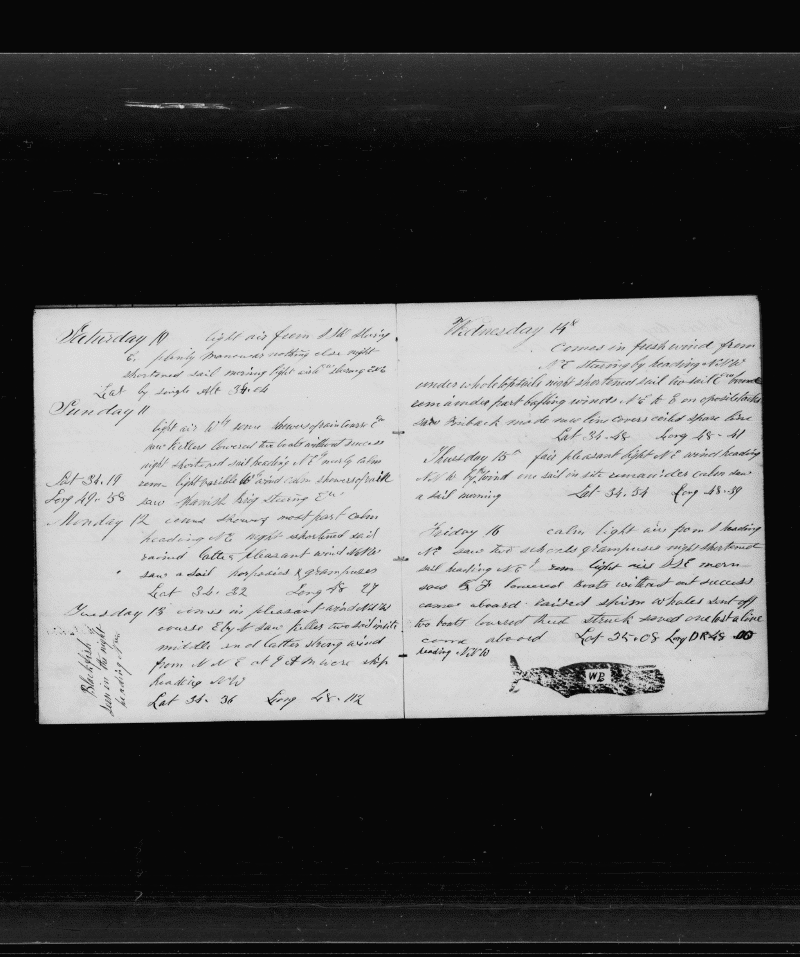 Saturday 10 light air from SSW steering
E. plenty manowar nothing else night
shortened sail morning light airs strong
Lat by single Alt 34.04
Sunday 11
light air some showers of rain
saw killers lowered two boats without success
night shortened sail heading N E nearly calm
Lat 34.19 rem light variable wind calm showers of
Long 49-58 saw Spanish brig steering
Monday 12 comes showery most part calm
heading N E night shortened sail
raind latter pleasant wind
saw a sail porposies & grampuses
Lat 34-32 Long 48 27
Tuesday 13 comes in pleasant wind
course E by N saw killers two sail in site
middle and latter strong wind
from N N E at 9 A M wore ship
heading NW
Lat 34-36 Long 48-42
Blackfish
seen in the night
heading
Wednesday 14th
comes in fresh wind from
N E steering by heading
under whole topsails night shortened sail two sail bound
remainder part bafling winds N E & E on oposite tacks
saw finback made new line covers coild spare line
Lat 34-48 Long 48-41
Thursday 15th fair pleasant light N E wind heading
wind one sail in site remainder calm saw
a sail morning Lat 34-54 Long 48-39
Friday 16 calm light air from S heading
saw two schools grampuses night shortened
sail heading rem light airs SSE morn
saw lowered Boats without out success
came aboard raised sperm whales sent off
two boats lowered third struck saved one lost a line
come aboord Lat 35-08 Long DR 48 00
heading
WB